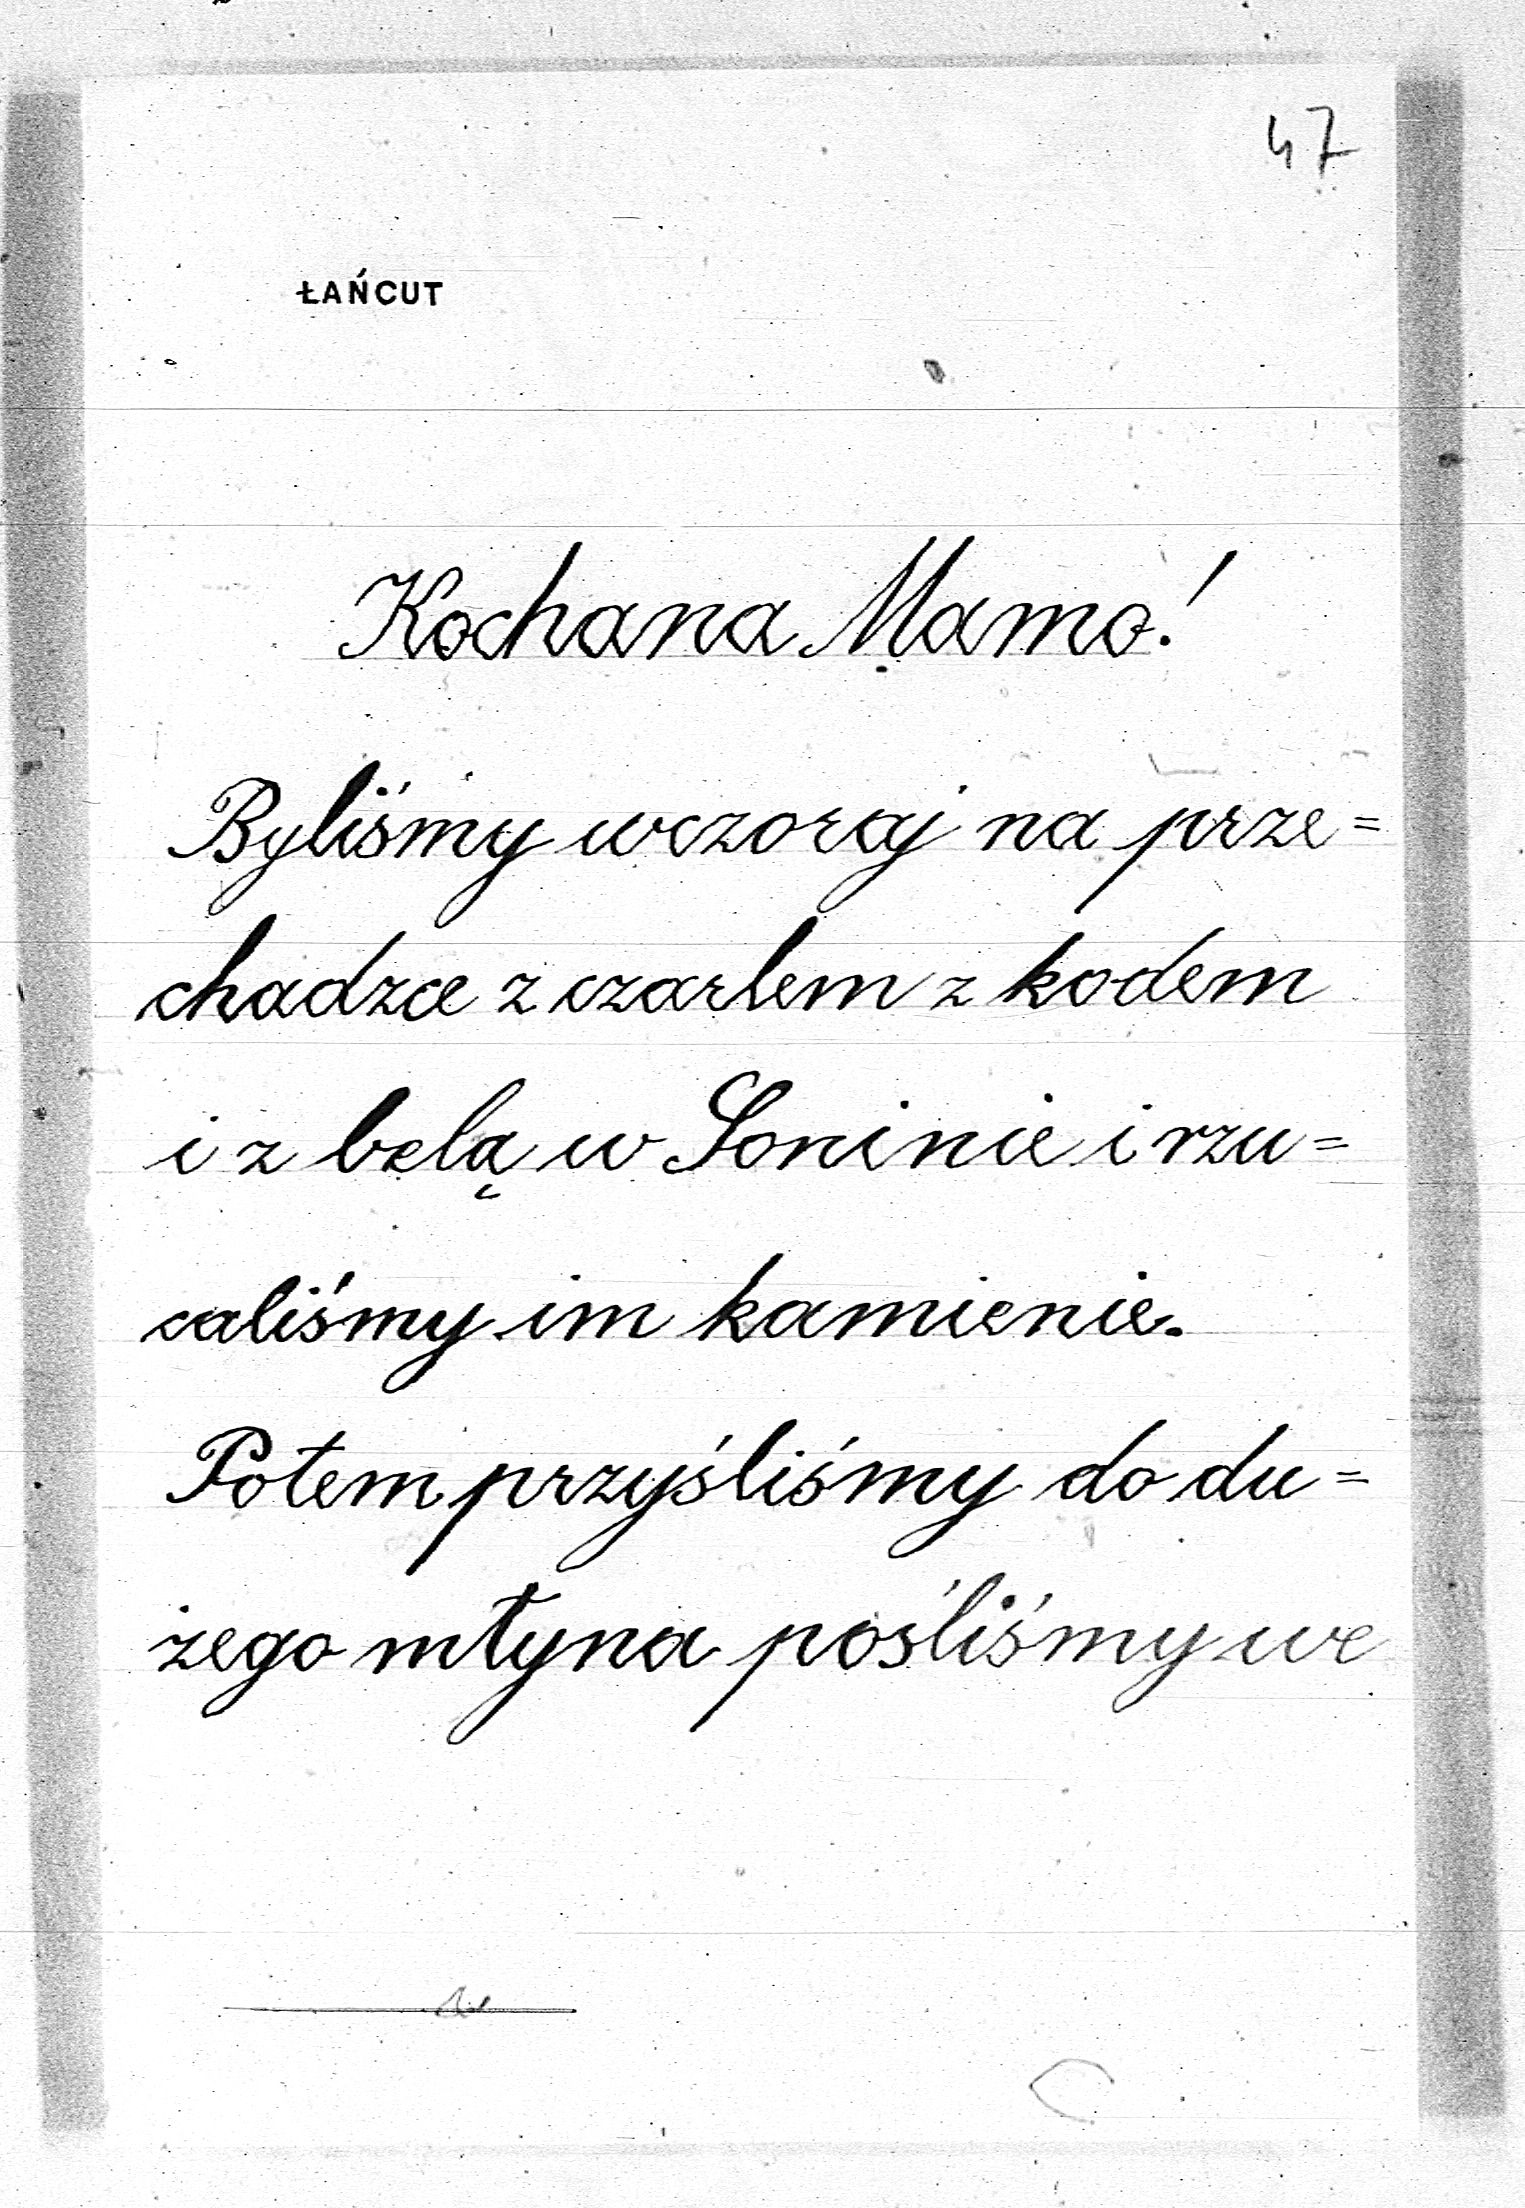 47
ŁAŃCUT
Kochana Mamo!
Byliśmy wczoraj na prze=
chadzce z czarlem z kodem
i z belą w Soninie i rzu=
caliśmy im kamienie.
Potem przyśliśmy do du=
żego młyna pośliśmy we